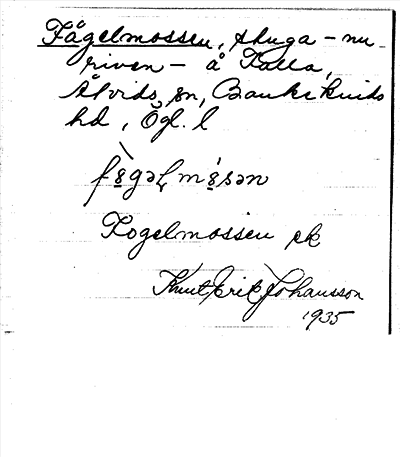 Fågelmossen, stuga - nu
riven - å Kalla,
Åtvids sn, Bankekinds
hd, Ögl. l
Fogelmossen ek
Knut Erik Johansson
1935